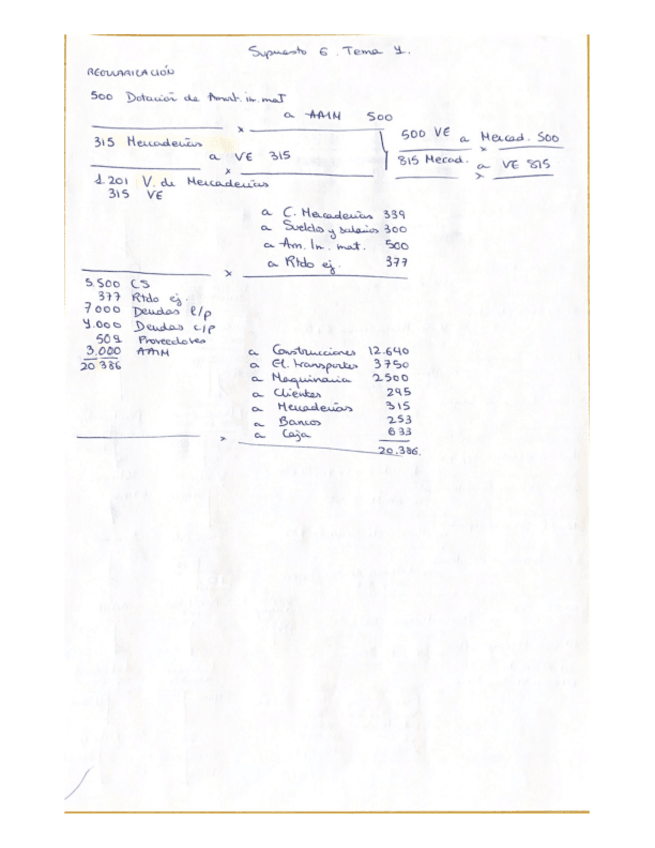 Supuesto 6. Tema 4.
REGULARIZACIÓN
500 Dotación de Amort. in. mat
a AAIM 500
315 Mercaderías
a VE 315
500 VE a Mercad. 500
815 Mercad. a VE 815
1.201 V. de Mercaderías
315 VE
a C. Mercaderías 339
a Sueldos y salarios 300
a Am. In. mat. 500
a Rtdo ej. 377
5.500 CS
377 Rtdo ej.
7000 Deudas l/p
4.000 Deudas c/p
509 Proveedores
3.000 AAIM
20 386
a Construcciones 12.640
a El. transportes 3750
a Maquinaria 2500
a Clientes 295
a Mercaderías 315
a Bancos 253
a Caja 633
20.386.